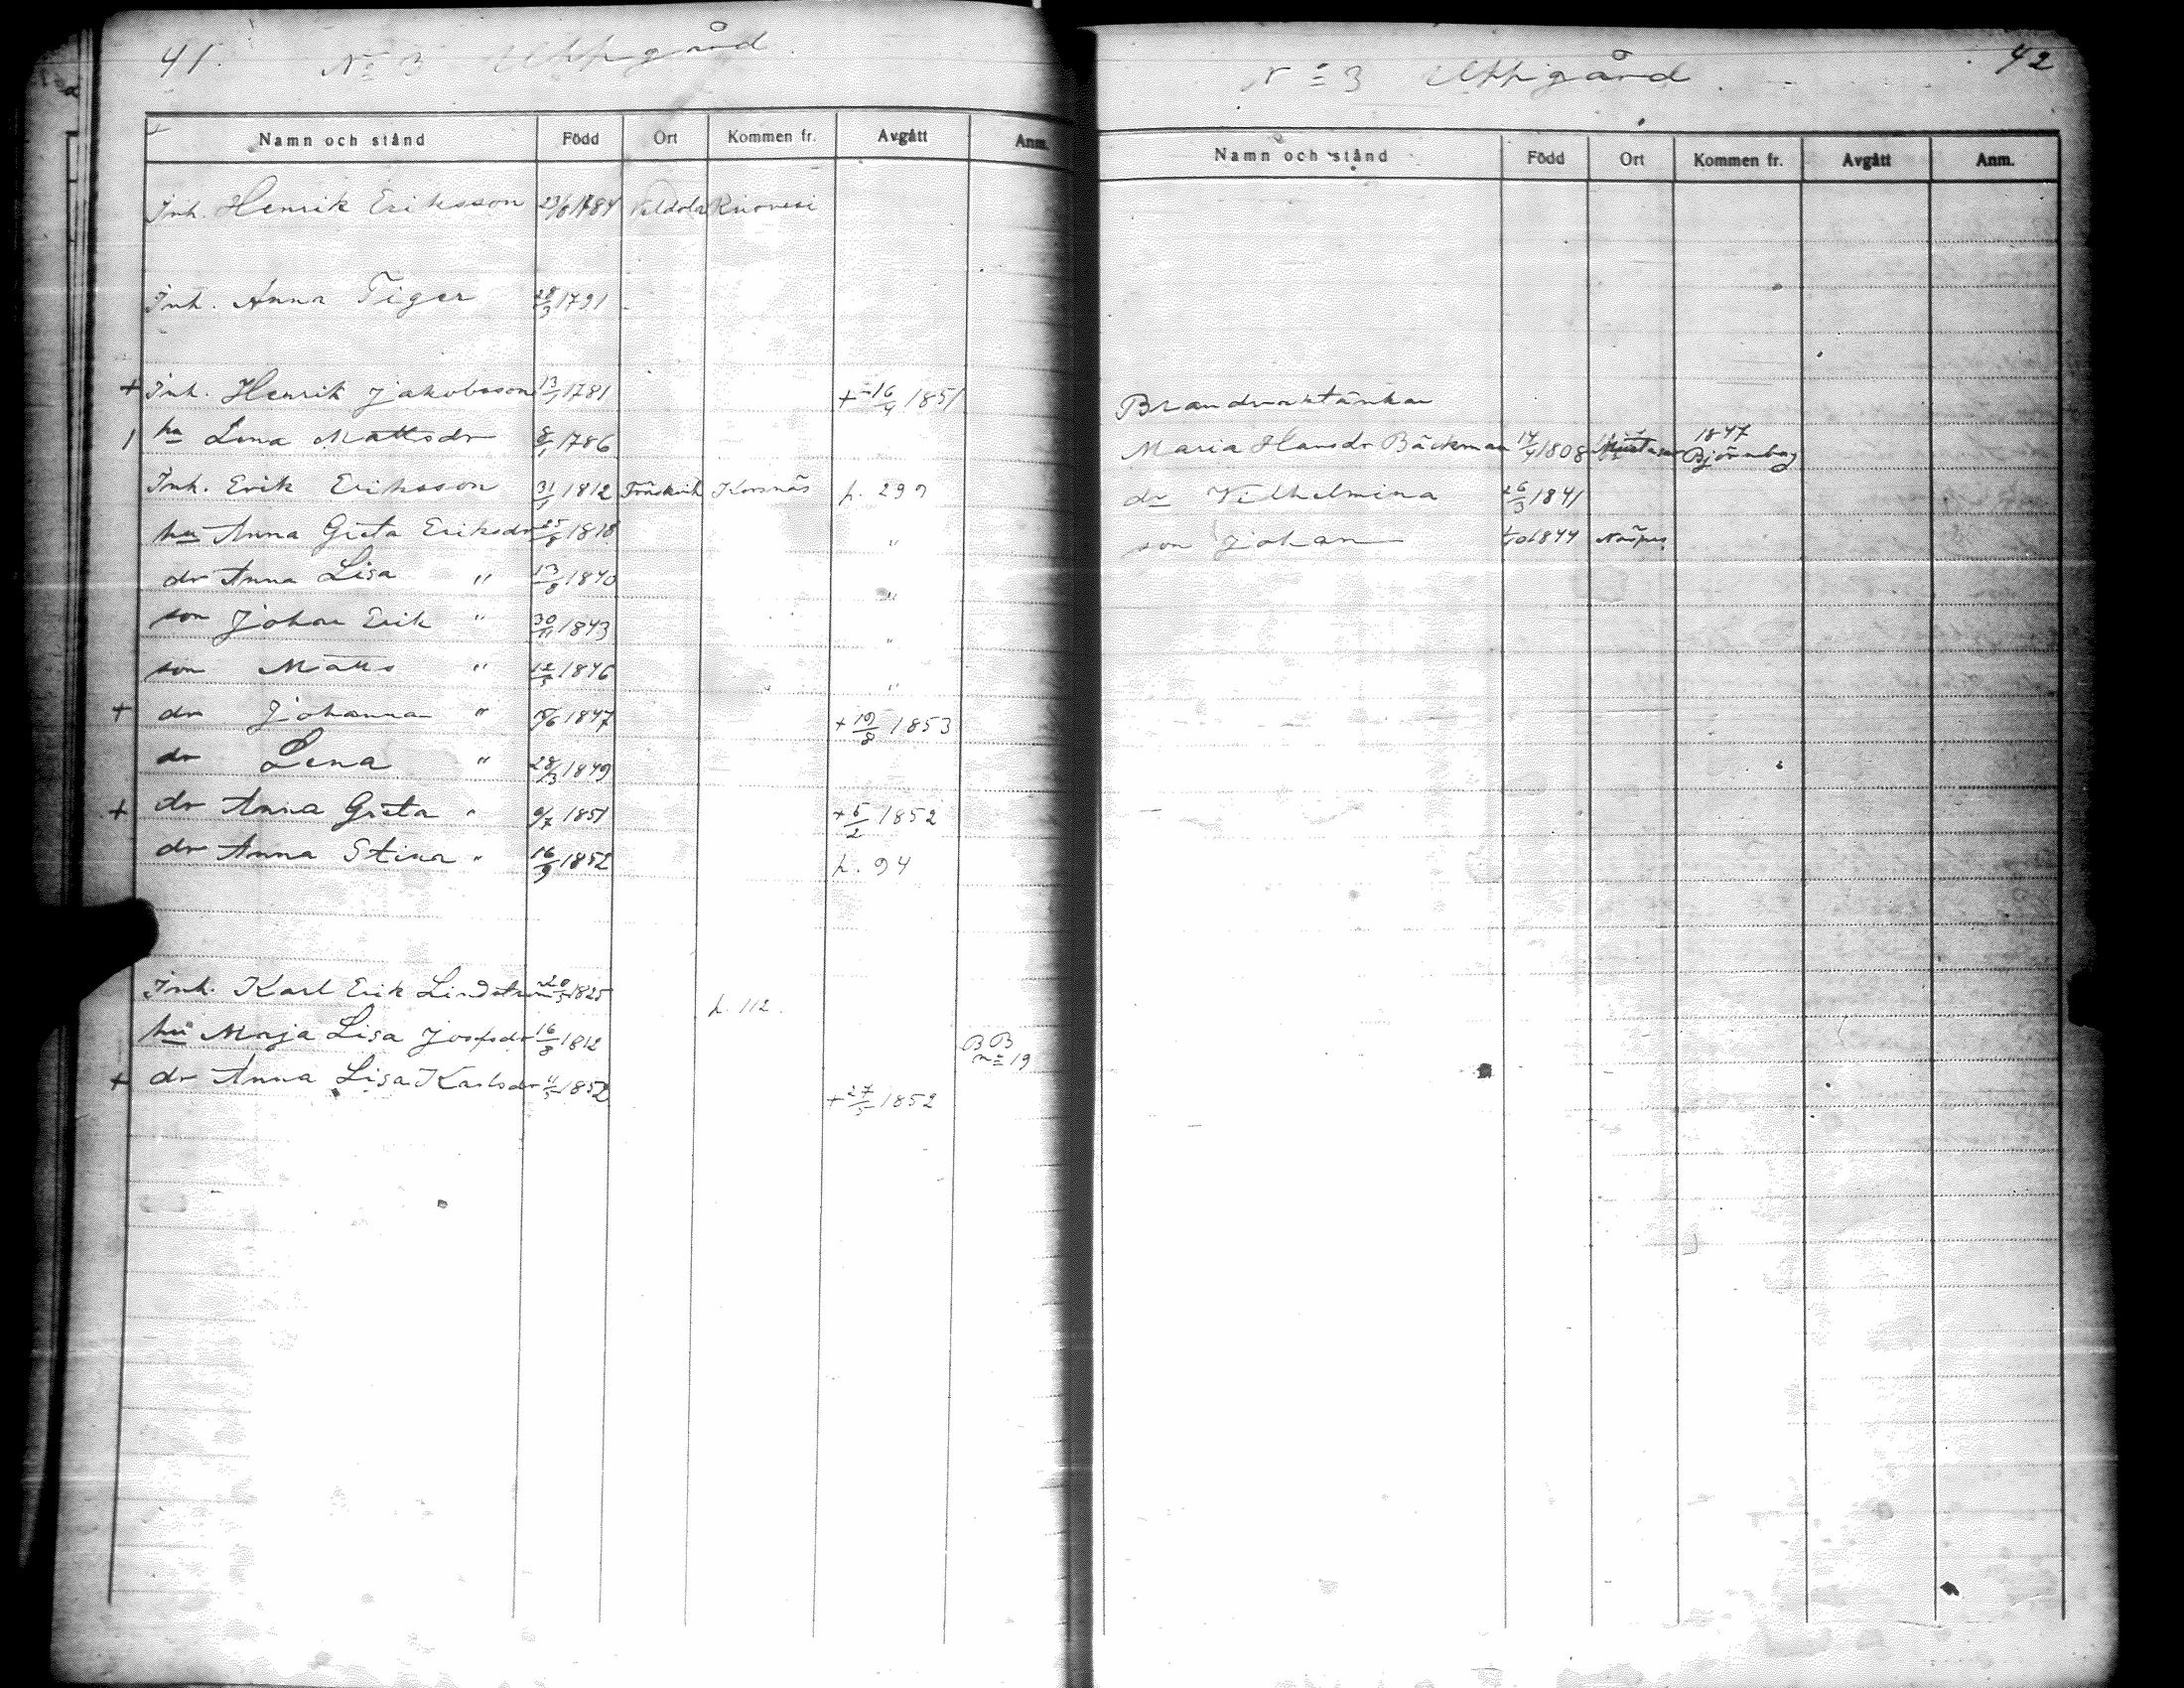 41. No 3 Uppgård.
Namn och stånd Född Ort Kommen fr. Avgått Anm.
Inh. Henrik Eriksson 23/8 1784
Inh. Anna Tiger 28/3 1791
+ Inh. Henrik Jakobsson 13/1 1781 + 16/4 1851
hu Lena Mattsdr 8/1 1786
Inh. Erik Eriksson 31/1 1812 Korsnäs p. 299
hu Anna Greta Eriksdr 25/8 1818 "
dr Anna Lisa " 13/8 1840 "
son Johan Erik " 30/11 1843 "
son Matts " 12/5 1846 "
+ dr Johanna " 1847 + 19/8 1853
dr Lena " 28/3 1849
+ dr Anna Greta " 9/7 1851 + 5/2 1852
dr Anna Stina " 16/9 1852 p. 94
Inh. Karl Erik Lindström 20/5 1825 p. 112.
hu Maja Lisa Josefsdr 16/8 1812 BB
no 19
+ dr Anna Lisa Karlsdr 11/5 1852 + 27/5 1852
42
No 3 Uppgård.
Namn och stånd Född Ort Kommen fr. Avgått Anm.
Brandvaktänkan
1847
Maria Hansdr Bäckman 14/4 1808 Björneborg
dr Vilhelmina 26/3 1841
son Johan 1844 Närpes